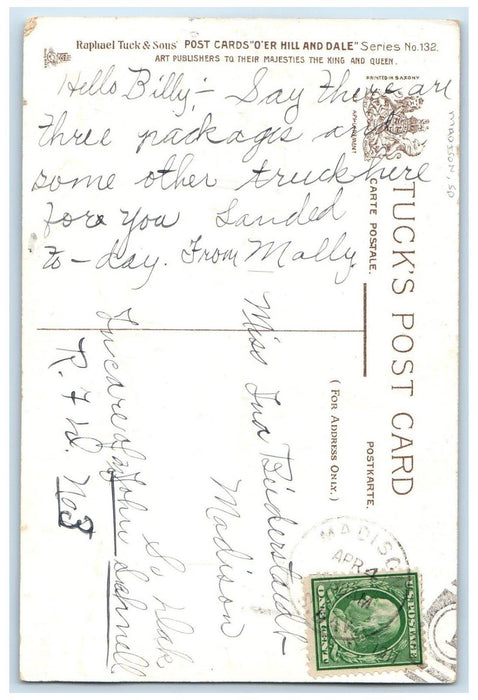 Raphael Tuck & Sons' POST CARDS "O'ER HILL AND DALE" Series No. 132.
ART PUBLISHERS TO THEIR MAJESTIES THE KING AND QUEEN.
PRINTED IN SAXONY
APPOINTMENT
Hello Billy;- Say there are
three packages and
some other truck here
fore you Landed
to-day. From Molly.
Madison, SD
TUCK'S POST CARD
CARTE POSTALE.
POSTKARTE.
(FOR ADDRESS ONLY.)
Miss Ina Büderstadt
Madison
So Dak
In care of John Schnell
R. F. D. No 3
MADISO
APR
U.S. POSTAGE
ONE CENT